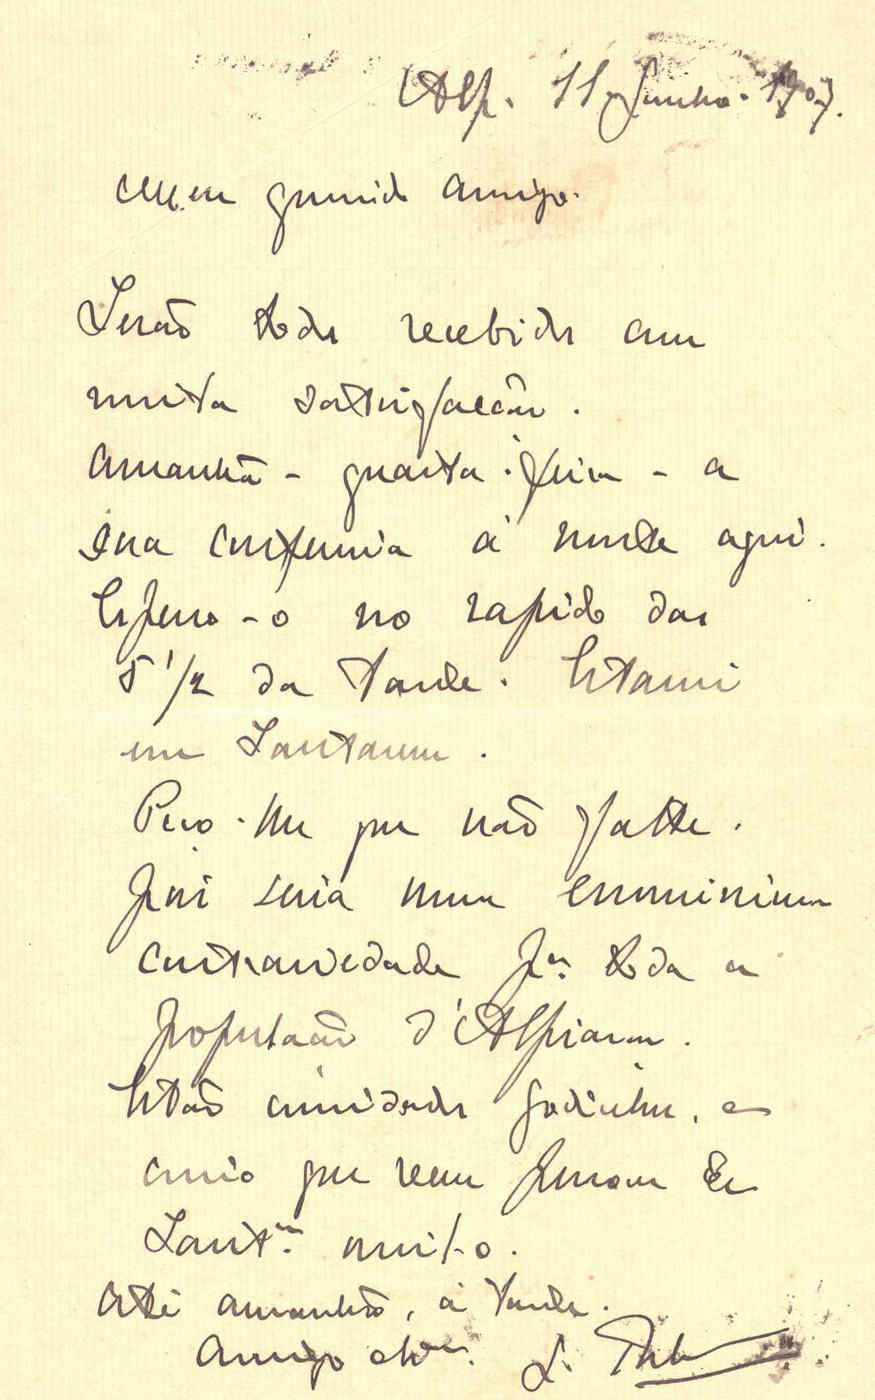 Alp. 11 Junho. 1907.
Meu querido amigo.
Serão todos recebidos com
muita satisfação.
Amanhã - quarta-feira - a
sua conferencia á noute aqui.
Espero-o no rapido das
5 1/2 da tarde. Estarei
em Santarem.
Peço-lhe que não falte.
Pois seria uma enormissima
contrariedade p.ª toda a
população d'Alpiarça.
Estão convidados Godinho, e
creio que vem pessoas de
Sant.m muito.
Até amanhã, á tarde.
Amigo